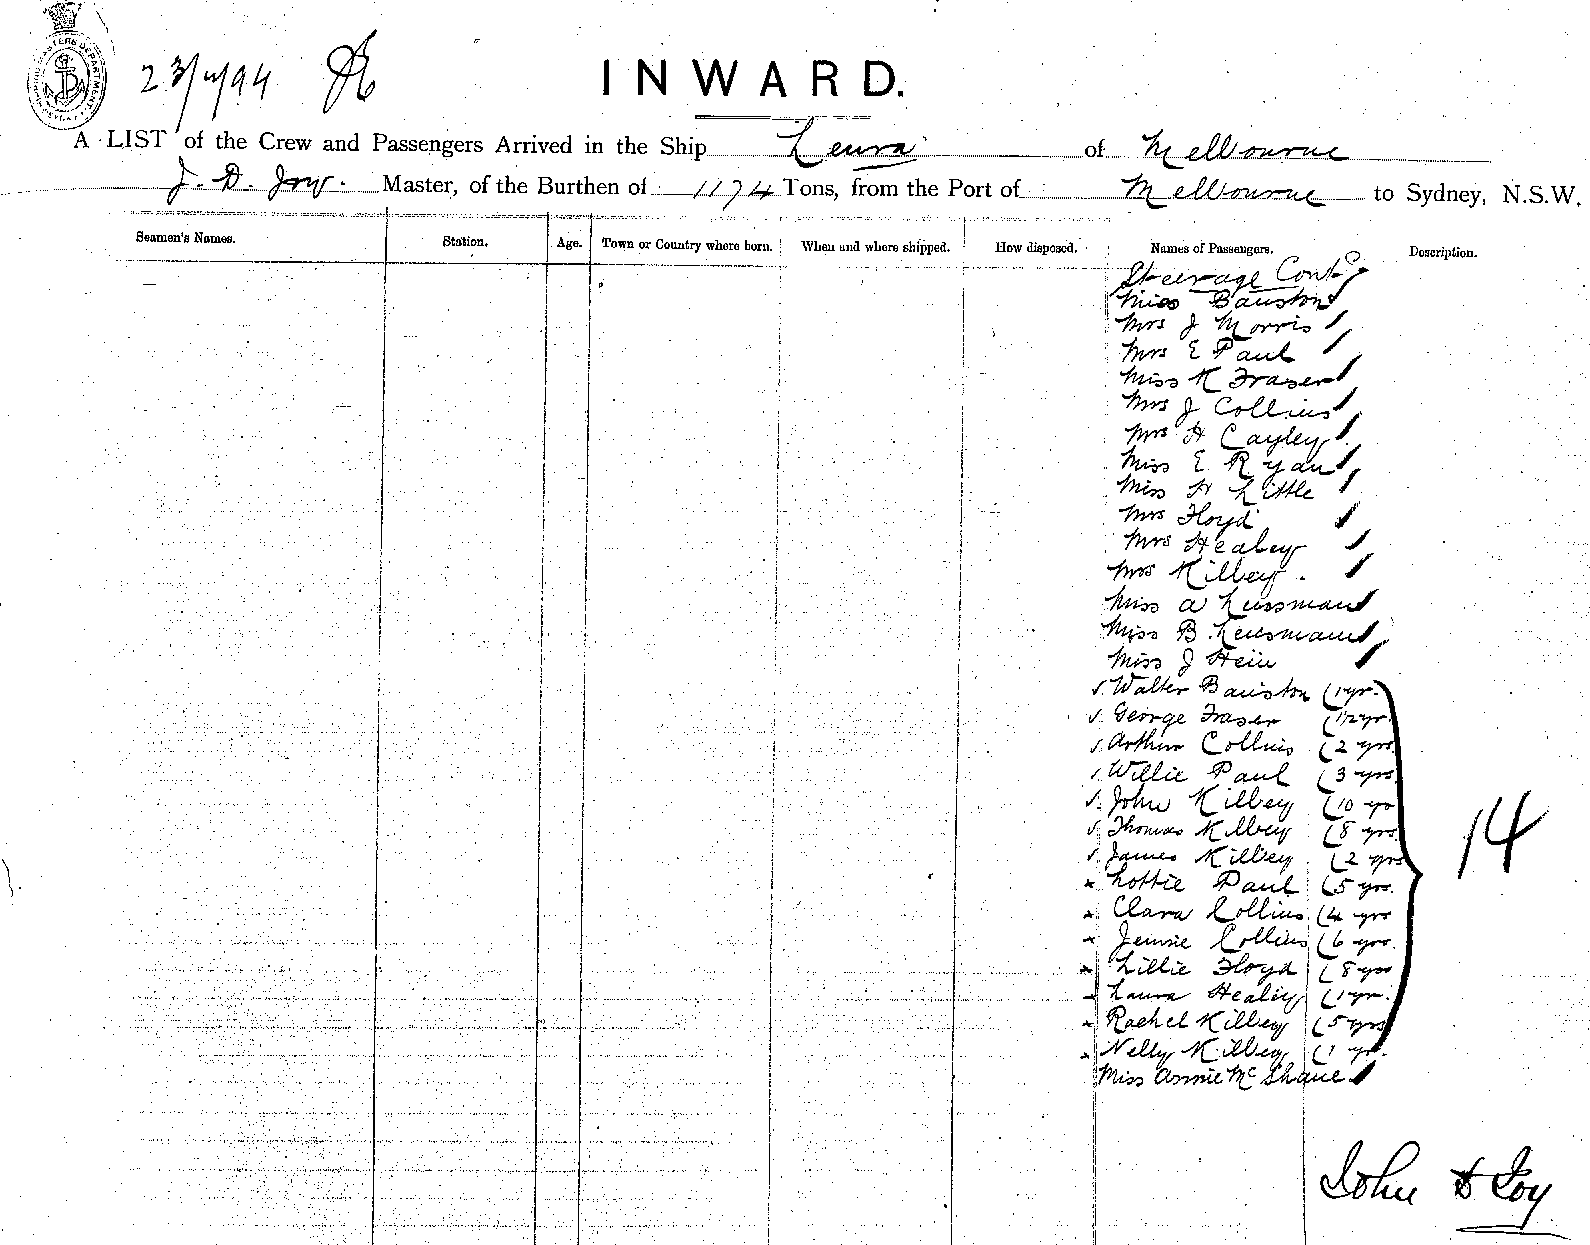 23/4/94
INWARD.
A LIST of the Crew and Passengers Arrived in the Ship Leura of Melbourne
J. D. Joy. Master, of the Burthen of 1174 Tons, from the Port of Melbourne to Sydney, N.S.W.
Seamen's Names. Station. Age. Town or Country where born. When and where shipped. How disposed. Names of Passengers. Description.
Steerage Contd
Miss Bauston
Mrs J Morris
Mrs E Paul
Miss K Fraser
Mrs J Collins
Mrs H Cayley
Miss E Ryan
Miss H Little
Mrs Floyd
Mrs Healey
Mrs Kilbey
Miss A Leusmann
Miss B Leusmann
Miss J Hein
Walter Bauston (1 yr.
George Fraser (1½ yr.
Arthur Collins (2 yrs.
Willie Paul (3 yrs
John Kilbey (10 yrs
Thomas Kilbey (8 yrs
James Kilbey (2 yrs
Lottie Paul (5 yrs.
Clara Collins (4 yrs
Jennie Collins (6 yrs.
Lillie Floyd (8 yrs
Laura Healey (1 yr.
Rachel Kilbey (5 yrs
Nelly Kilbey (1 yr.
14
Miss Annie McShane
John D Joy